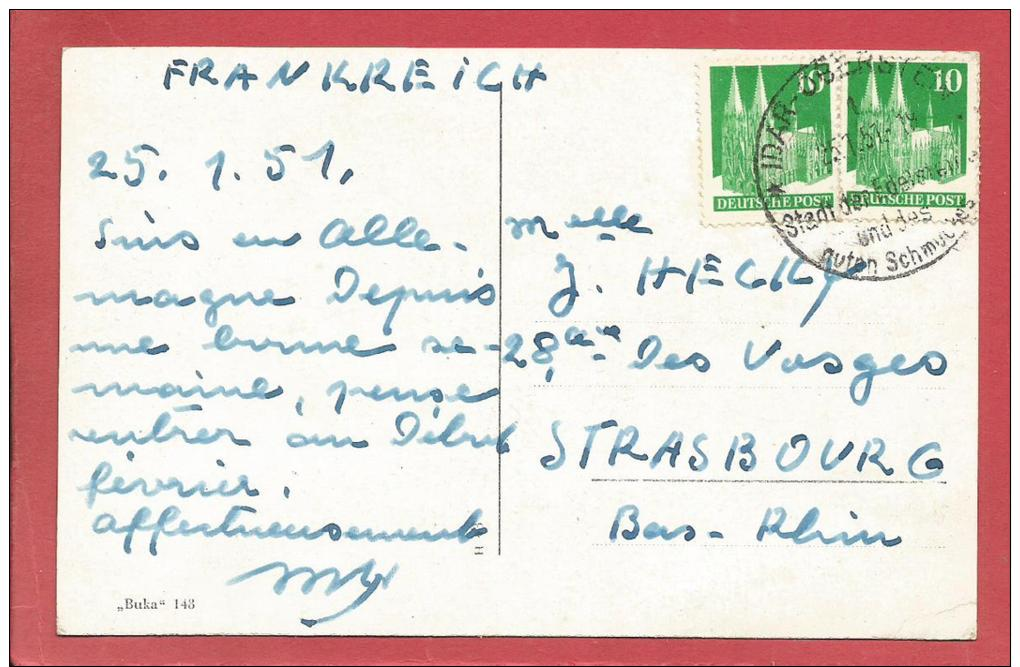 FRANKREICH
25. 1. 51.
Suis en Alle-
magne Depuis
une bonne se-
maine, pense
rentrer au Début
février.
affectueusement
"Buka" 148
10
DEUTSCHE POST
10
DEUTSCHE POST
IDAR-OBERSTEIN
Stadt der Edelsteine
und des
guten Schmuckes
Melle
J. HECKY
28, Des Vosges
STRASBOURG
Bas-Rhin